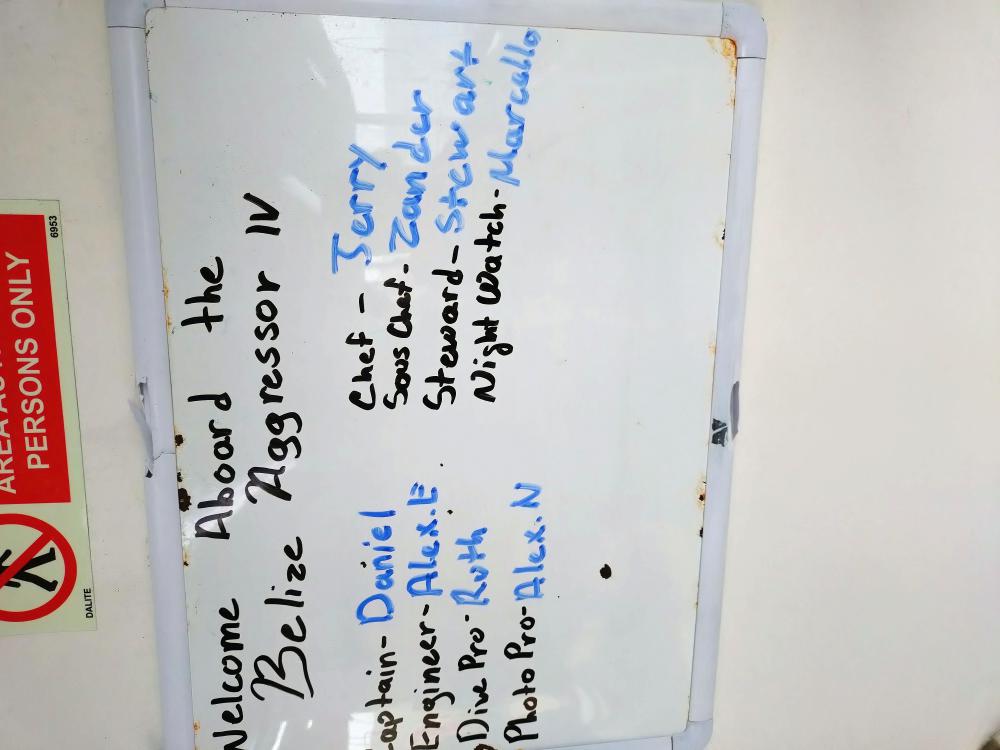 PERSONS ONLY
6953
DALITE
Welcome Aboard the
Belize Aggressor IV
Captain- Daniel
Engineer- Alex.E
Dive Pro- Ruth
Photo Pro- Alex.N
Chef - Jerry
Sous Chef- Zander
Steward- Stewart
Night Watch- Marcello